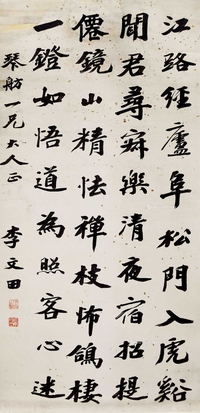 江路經廬阜松門入虎谿
聞君尋寂樂清夜宿招提
僊鏡山精怯禪枝怖鴿棲
一鐙如悟道為照客心迷
琴舫一兄大人正
李文田